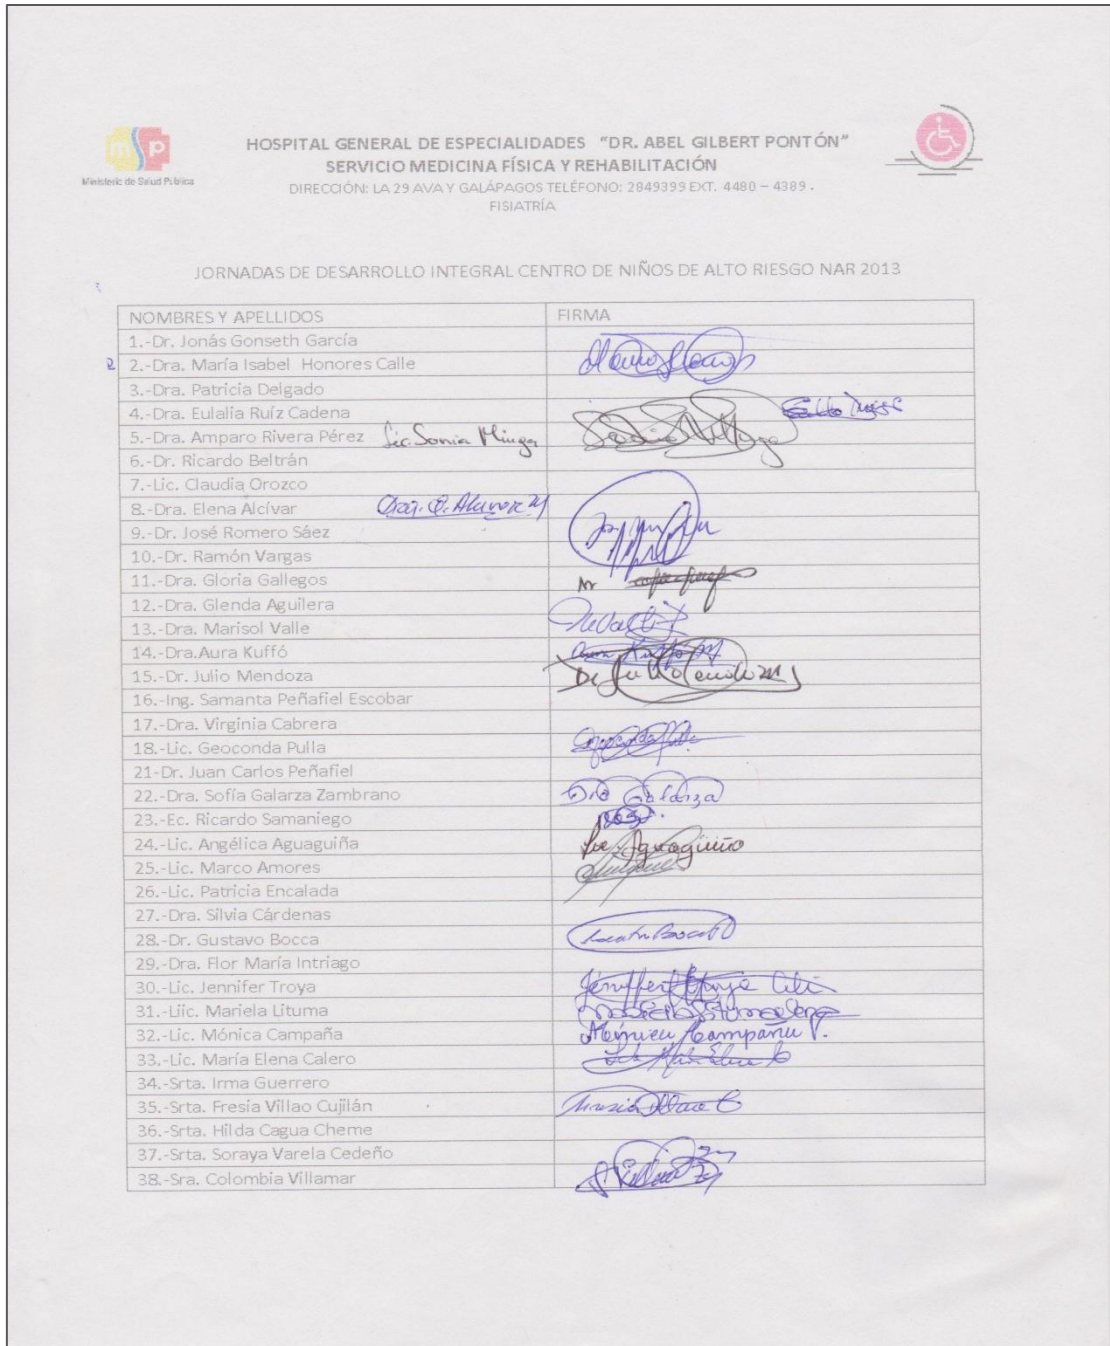 msp
Ministerio de Salud Pública
HOSPITAL GENERAL DE ESPECIALIDADES “DR. ABEL GILBERT PONTÓN”
SERVICIO MEDICINA FÍSICA Y REHABILITACIÓN
DIRECCIÓN: LA 29 AVA Y GALÁPAGOS TELÉFONO: 2849399 EXT. 4480 – 4389 .
FISIATRÍA
JORNADAS DE DESARROLLO INTEGRAL CENTRO DE NIÑOS DE ALTO RIESGO NAR 2013
NOMBRES Y APELLIDOS FIRMA
1.-Dr. Jonás Gonseth García
2.-Dra. María Isabel Honores Calle
3.-Dra. Patricia Delgado
4.-Dra. Eulalia Ruíz Cadena
5.-Dra. Amparo Rivera Pérez Lic. Sonia
6.-Dr. Ricardo Beltrán
7.-Lic. Claudia Orozco
8.-Dra. Elena Alcívar
9.-Dr. José Romero Sáez
10.-Dr. Ramón Vargas
11.-Dra. Gloria Gallegos
12.-Dra. Glenda Aguilera
13.-Dra. Marisol Valle
14.-Dra.Aura Kuffó
15.-Dr. Julio Mendoza
16.-Ing. Samanta Peñafiel Escobar
17.-Dra. Virginia Cabrera
18.-Lic. Geoconda Pulla
21-Dr. Juan Carlos Peñafiel
22.-Dra. Sofía Galarza Zambrano Galarza
23.-Ec. Ricardo Samaniego
24.-Lic. Angélica Aguaguiña
25.-Lic. Marco Amores
26.-Lic. Patricia Encalada
27.-Dra. Silvia Cárdenas
28.-Dr. Gustavo Bocca
29.-Dra. Flor María Intriago
30.-Lic. Jennifer Troya
31.-Liic. Mariela Lituma
32.-Lic. Mónica Campaña
33.-Lic. María Elena Calero
34.-Srta. Irma Guerrero
35.-Srta. Fresia Villao Cujilán
36.-Srta. Hilda Cagua Cheme
37.-Srta. Soraya Varela Cedeño
38.-Sra. Colombia Villamar